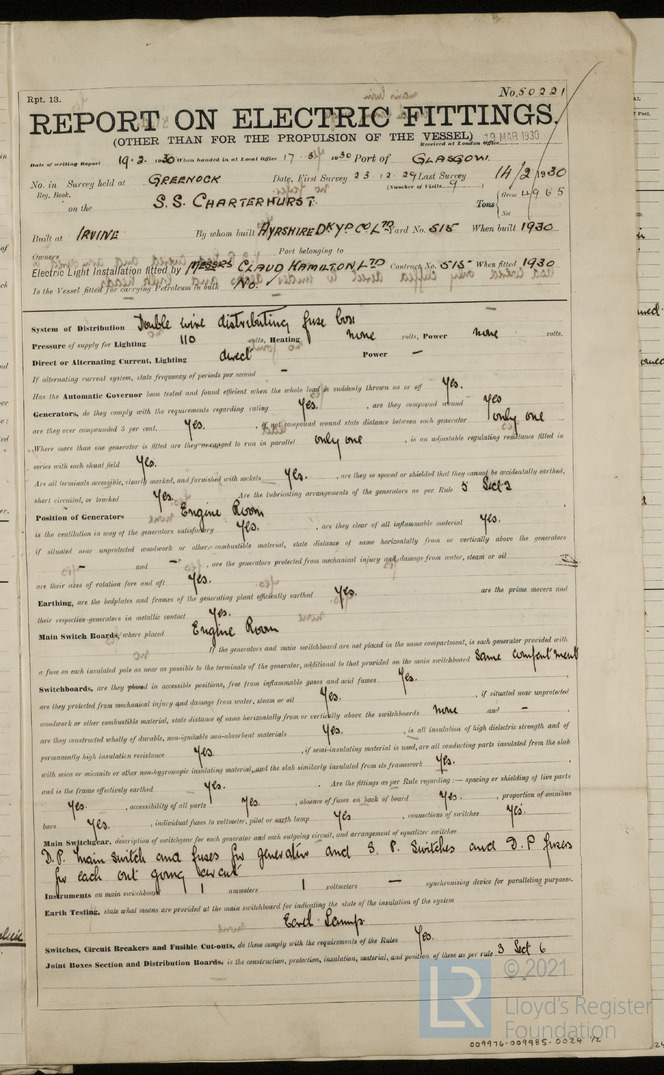 Rpt. 13.
No. 50221
REPORT ON ELECTRIC FITTINGS.
(OTHER THAN FOR THE PROPULSION OF THE VESSEL)
19 MAR 1930
Received at London Office
Date of writing Report 19.2.1930 When handed in at Local Office 17 1930 Port of GLASGOW.
No. in Survey held at GREENOCK Date, First Survey 23.12.29 Last Survey 14/2 1930
Reg. Book. (Number of Visits 9)
on the S.S. CHARTERHURST. Tons Gross
Net
Built at IRVINE By whom built AYRSHIRE DKYD CO LTD Yard No. 515 When built 1930
Owners Port belonging to
Electric Light Installation fitted by MESSRS CLAUD HAMILTON LTD Contract No. 515 When fitted 1930
Is the Vessel fitted for carrying Petroleum in bulk No.
System of Distribution Double wire distributing fuse box
Pressure of supply for Lighting 110 volts, Heating none volts, Power none volts.
Direct or Alternating Current, Lighting direct Power —
If alternating current system, state frequency of periods per second —
Has the Automatic Governor been tested and found efficient when the whole load is suddenly thrown on or off Yes.
Generators, do they comply with the requirements regarding rating Yes. , are they compound wound Yes
are they over compounded 5 per cent. Yes. , if not compound wound state distance between each generator only one
Where more than one generator is fitted are they arranged to run in parallel only one , is an adjustable regulating resistance fitted in
series with each shunt field Yes.
Are all terminals accessible, clearly marked, and furnished with sockets Yes. , are they so spaced or shielded that they cannot be accidentally earthed,
short circuited, or touched Yes. Are the lubricating arrangements of the generators as per Rule 5 Sect 2
Position of Generators Engine Room
is the ventilation in way of the generators satisfactory Yes. , are they clear of all inflammable material Yes.
if situated near unprotected woodwork or other combustible material, state distance of same horizontally from or vertically above the generators
— and — , are the generators protected from mechanical injury and damage from water, steam or oil
are their axes of rotation fore and aft Yes.
Earthing, are the bedplates and frames of the generating plant efficiently earthed Yes. are the prime movers and
their respective generators in metallic contact Yes.
Main Switch Boards, where placed Engine Room
If the generators and main switchboard are not placed in the same compartment, is each generator provided with
a fuse on each insulated pole as near as possible to the terminals of the generator, additional to that provided on the main switchboard Same compartment
Switchboards, are they placed in accessible positions, free from inflammable gases and acid fumes Yes.
are they protected from mechanical injury and damage from water, steam or oil Yes. , if situated near unprotected
woodwork or other combustible material, state distance of same horizontally from or vertically above the switchboards none and —
are they constructed wholly of durable, non-ignitable non-absorbent materials Yes. , is all insulation of high dielectric strength and of
permanently high insulation resistance Yes. , if semi-insulating material is used, are all conducting parts insulated from the slab
with mica or micanite or other non-hygroscopic insulating material, and the slab similarly insulated from its framework Yes.
and is the frame effectively earthed Yes. Are the fittings as per Rule regarding:— spacing or shielding of live parts
Yes. , accessibility of all parts Yes. , absence of fuses on back of board Yes. , proportion of omnibus
bars Yes. , individual fuses to voltmeter, pilot or earth lamp Yes , connections of switches Yes.
Main Switchgear, description of switchgear for each generator and each outgoing circuit, and arrangement of equalizer switches
D.P. main switch and fuses for generator and S.P. switches and D.P fuses
for each out going circuit
Instruments on main switchboard 1 ammeters 1 voltmeters — synchronising device for paralleling purposes.
Earth Testing, state what means are provided at the main switchboard for indicating the state of the insulation of the system
Earth Lamps
Switches, Circuit Breakers and Fusible Cut-outs, do these comply with the requirements of the Rules Yes.
Joint Boxes Section and Distribution Boards, is the construction, protection, insulation, material, and position of these as per rule 3 Sect 6
LR
© 2021
Lloyd's Register
Foundation
009976-009985-0024 1/2